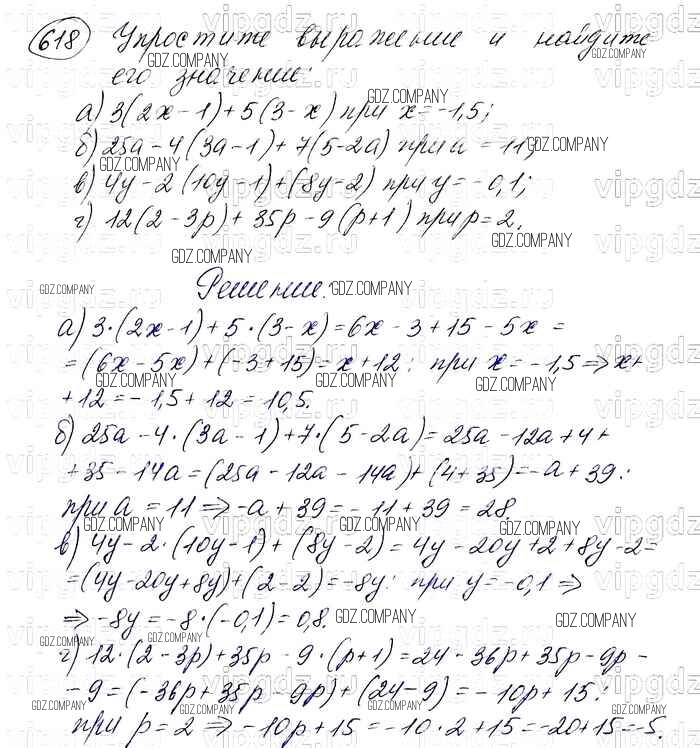 618 Упростите выражение и найдите
его значение:
а) 3(2x-1)+5(3-x) при x=-1,5;
б) 25a-4(3a-1)+7(5-2a) при a=11;
в) 4y-2(10y-1)+(8y-2) при y=-0,1;
г) 12(2-3p)+35p-9(p+1) при p=2.
Решение:
а) 3·(2x-1)+5·(3-x)=6x-3+15-5x=
=(6x-5x)+(-3+15)=x+12: при x=-1,5⇒x+
+12=-1,5+12=10,5.
б) 25a-4·(3a-1)+7·(5-2a)=25a-12a+4+
+35-14a=(25a-12a-14a)+(4+35)=-a+39:
при a=11⇒-a+39=-11+39=28.
в) 4y-2·(10y-1)+(8y-2)=4y-20y+2+8y-2=
=(4y-20y+8y)+(2-2)=-8y: при y=-0,1⇒
⇒-8y=-8·(-0,1)=0,8.
г) 12·(2-3p)+35p-9·(p+1)=24-36p+35p-9p-
-9=(-36p+35p-9p)+(24-9)=-10p+15:
при p=2⇒-10p+15=-10·2+15=-20+15=-5.